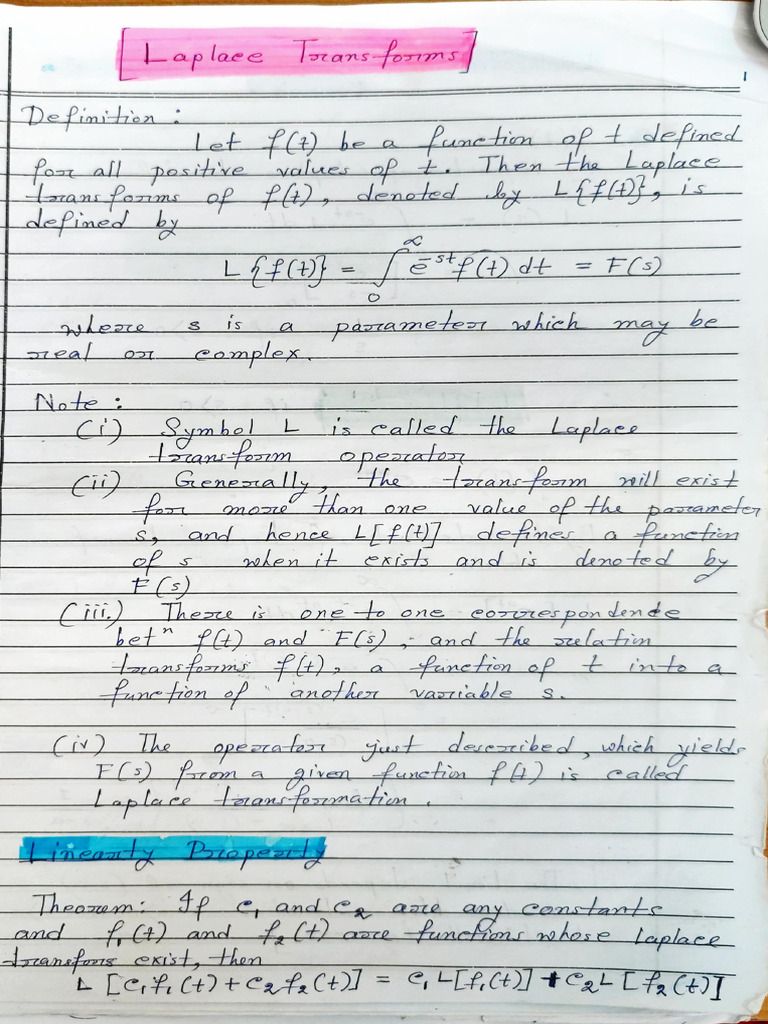 Laplace Transforms
1
Definition :
Let f(t) be a function of t defined
for all positive values of t. Then the Laplace
transforms of f(t), denoted by L{f(t)}, is
defined by
L{f(t)} = ∫₀^∞ e^-st f(t) dt = F(s)
where s is a parameter which may be
real or complex.
Note :
(i) Symbol L is called the Laplace
transform operator
(ii) Generally, the transform will exist
for more than one value of the parameter
s, and hence L[f(t)] defines a function
of s when it exists and is denoted by
F(s)
(iii.) There is one to one correspondence
betⁿ f(t) and F(s), and the relation
transforms f(t), a function of t into a
function of another variable s.
(iv) The operator just described, which yields
F(s) from a given function f(t) is called
Laplace transformation.
Linearity Property
Theorem: If c₁ and c₂ are any constants
and f₁(t) and f₂(t) are functions whose Laplace
transfors exist, then
L[c₁f₁(t) + c₂f₂(t)] = c₁L[f₁(t)] + c₂L[f₂(t)]